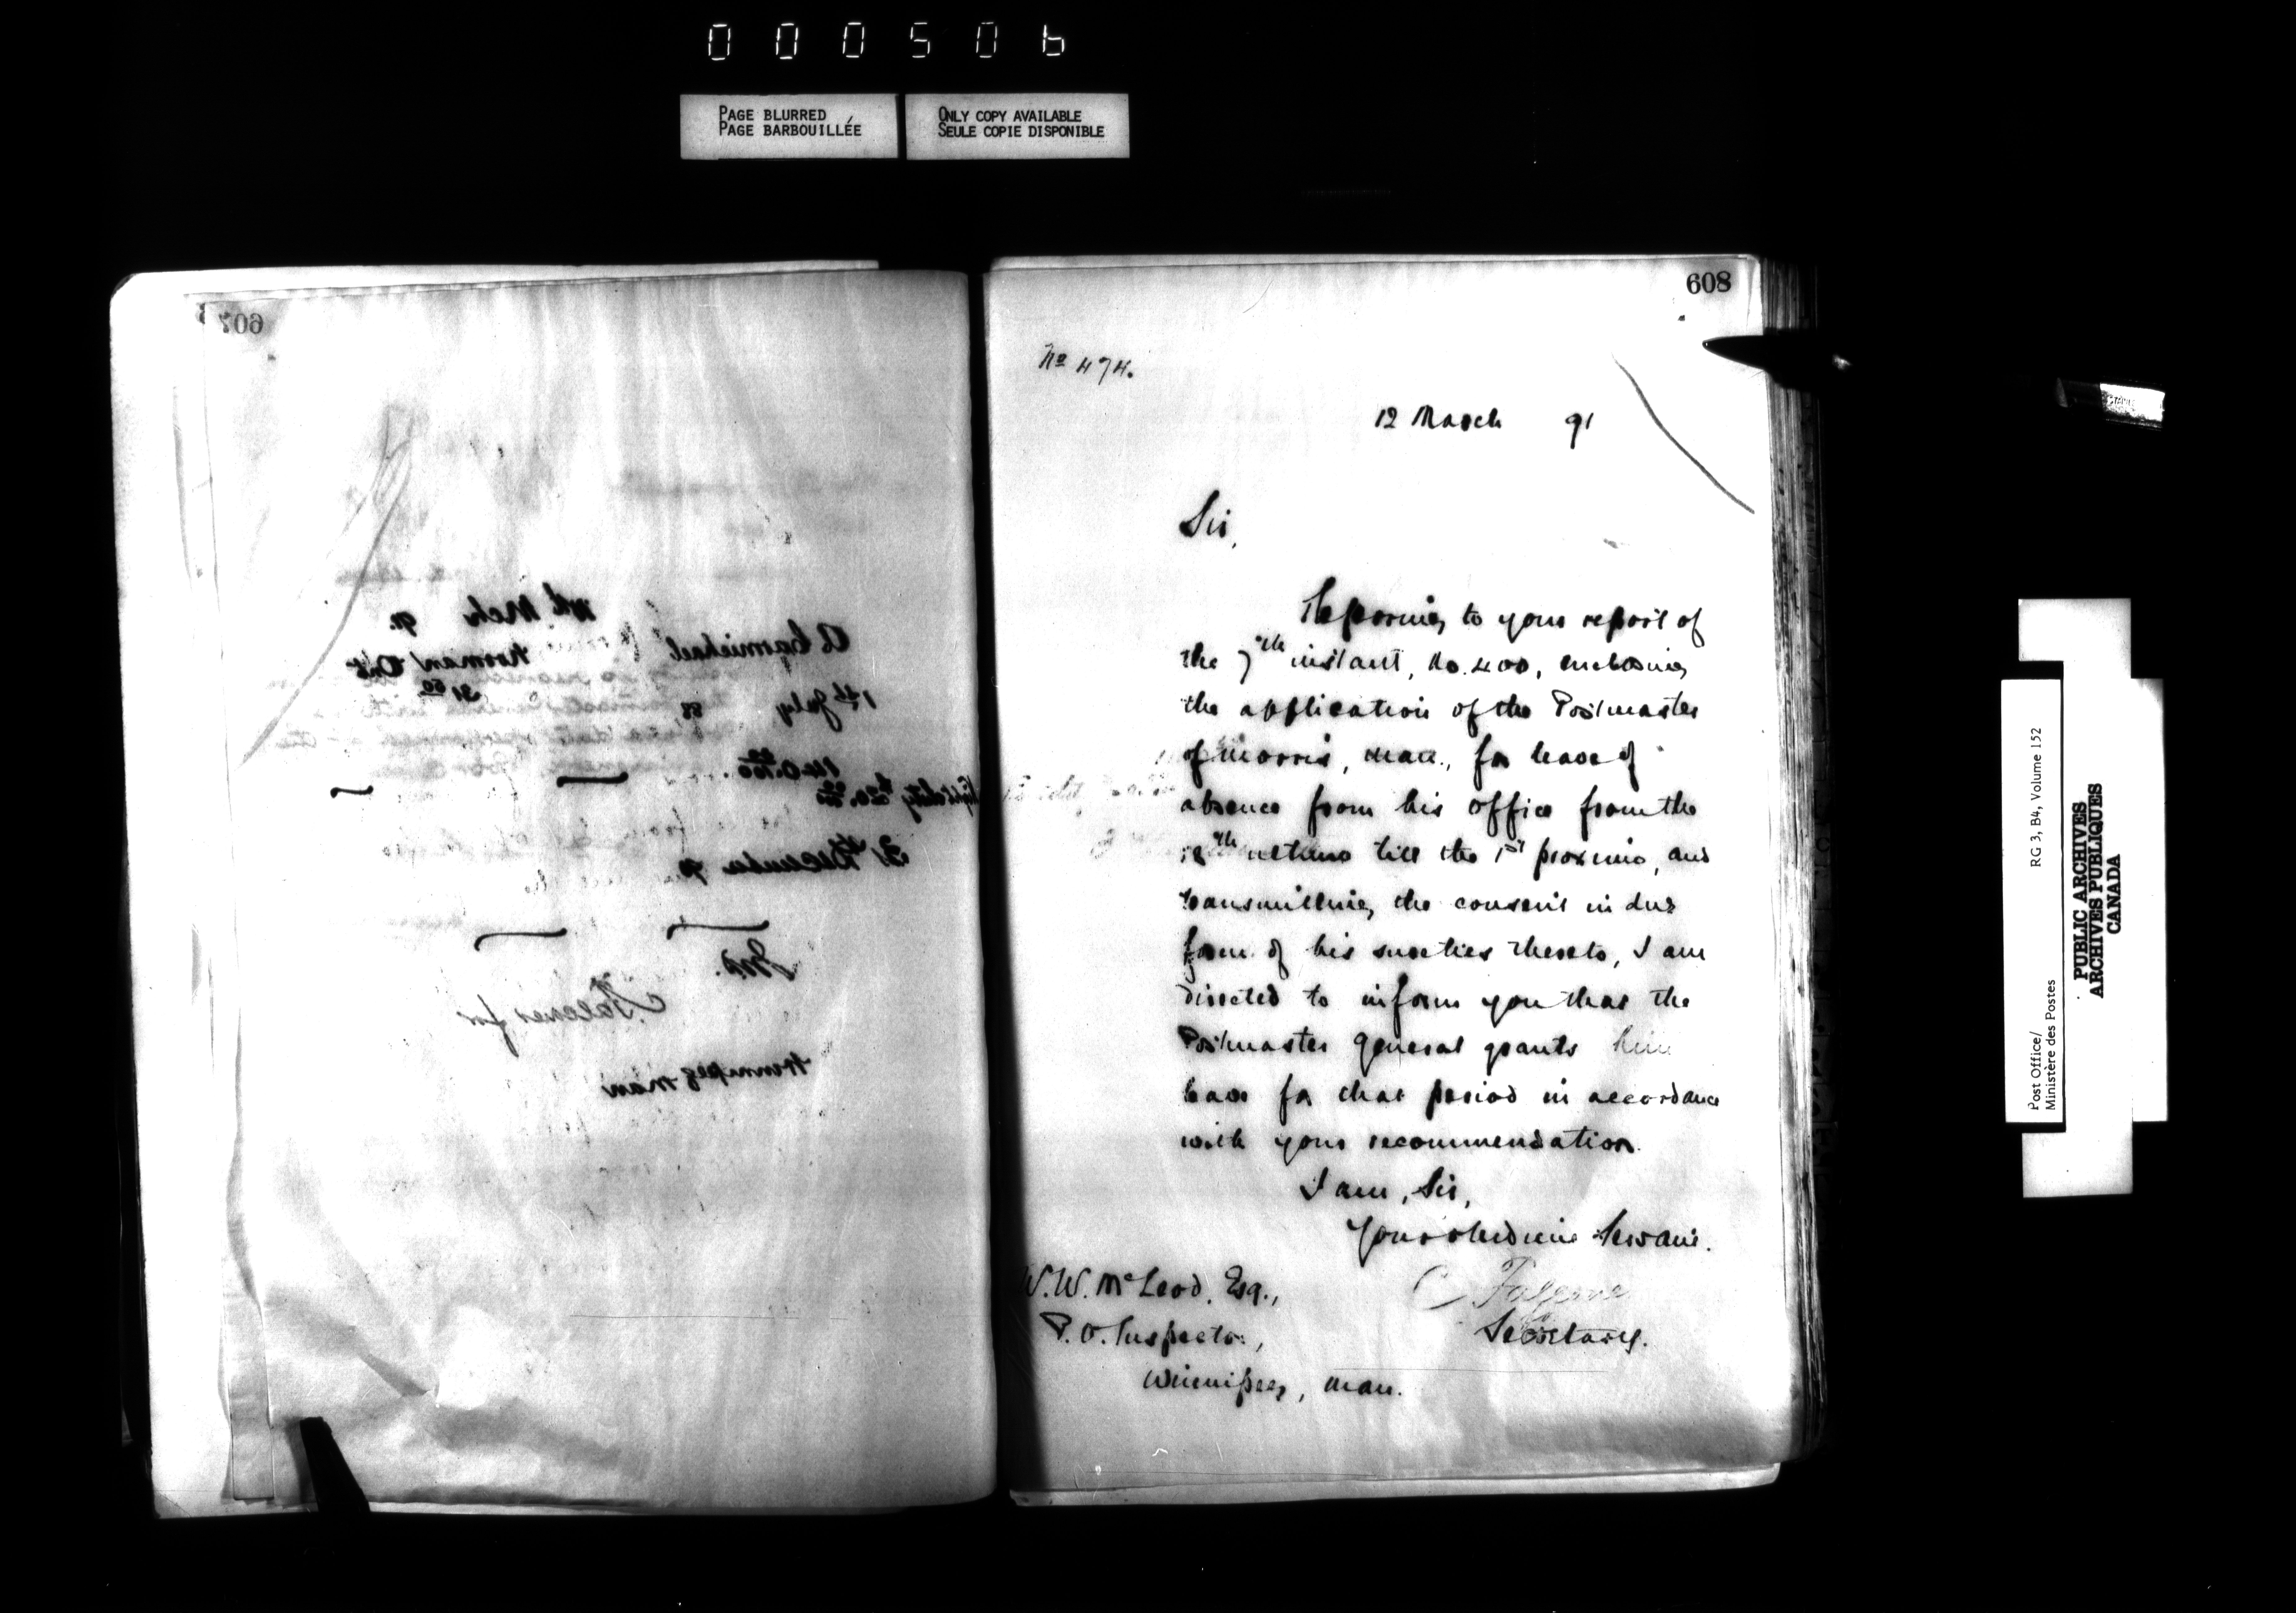 000506
PAGE BLURRED
PAGE BARBOUILLÉE
ONLY COPY AVAILABLE
SEULE COPIE DISPONIBLE
607
Mch 91
A Carmichael Norman Ont
1st July 88 31 50
140.00
Night duty 20.00
31 December 90
C Falconer for
Winnipeg Man
608
No 474.
12 March 91
Sir,
Referring to your report of
the 7th instant, No. 400, enclosing
the application of the Postmaster
of Morris, Man., for leave of
absence from his office from the
18th ultimo till the 1st proximo, and
transmitting the consent in due
form of his sureties thereto, I am
directed to inform you that the
Postmaster General grants him
leave for that period in accordance
with your recommendation.
I am, Sir,
Your obedient Servant.
W.W. McLeod, Esq.,
P.O. Inspector,
Winnipeg, Man.
Secretary.
Post Office/
Ministère des Postes
RG 3, B4, Volume 152
PUBLIC ARCHIVES
ARCHIVES PUBLIQUES
CANADA